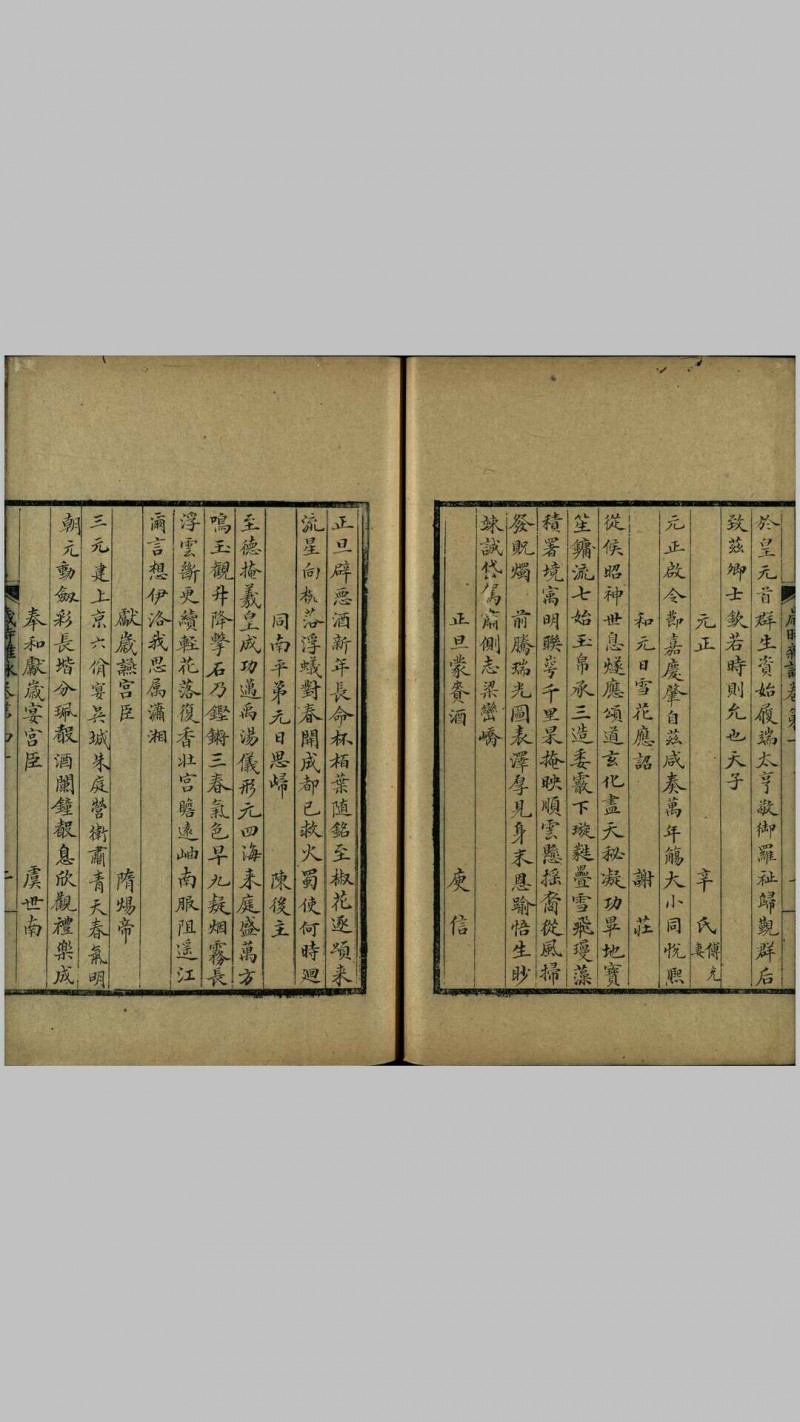 於皇元首群生資始履瑞太亨敬御羅祉歸觀群后
致茲卿士欽若時則允也天子
元正 辛氏 傅充妻
元正啟令節嘉慶肇自茲咸奏萬年觴大小同悅熙
和元日雪花應詔 謝莊
從侯昭神世息燧應頌道玄化盡天秘凝功畢地寶
笙鏞流七始玉帛承三造委霰下璇蕤疊雪飛瓊藻
積署境寓明聯萼千里杲掩映順雲懸搖裔從風掃
發貺燭 前騰瑞光圖表澤厚見身末恩踰悟生眇
竦誠岱 側志梁巒嶠
正旦蒙賚酒 庾信
正旦辟惡酒新年長命杯栢葉随銘至椒花逐頌来
流星向椀落浮蟻對春開成都已救火蜀使何時迴
同南平弟元日思歸 陳後主
至德掩羲皇成功邁禹湯儀形元四海来庭盛萬方
鳴玉觀升降擊石乃鏗鏘三春氣色早九疑烟霧長
浮雲斷更續輕花落復香壯宫瞻遠岫南服阻遥江
爾言想伊洛我思属瀟湘
獻歲讌宮臣 隋煬帝
三元建上京六佾宴吴城朱庭營衛肅青天春氣明
朝元動劔彩長堦分珮聲酒闌鐘聲息欣觀禮樂成
奉和獻歲宴宮臣 虞世南